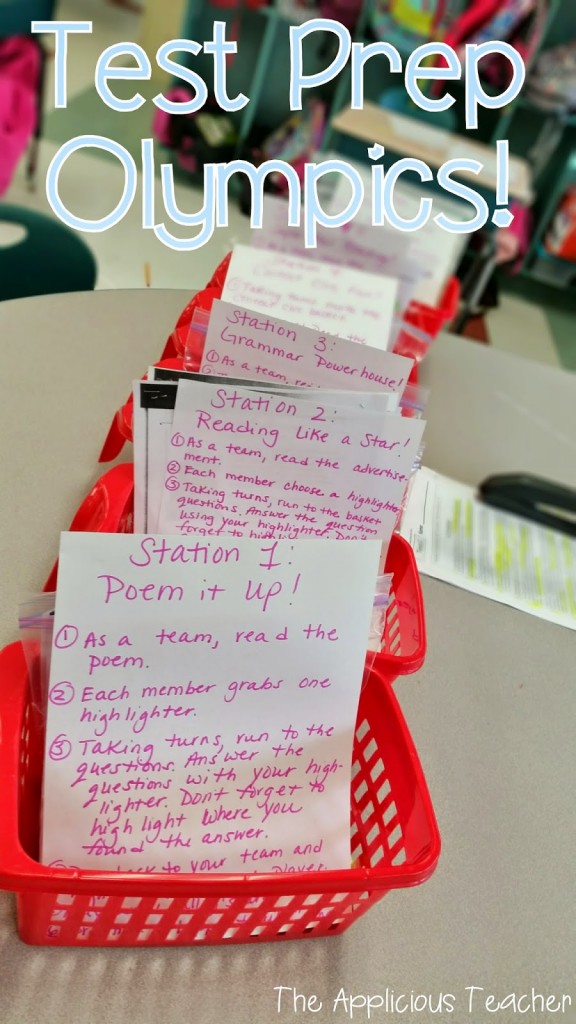 Test Prep
Olympics!
Station 3:
Grammar Powerhouse!
① As a team,
Station 2:
Reading Like a Star!
① As a team, read the advertise-
ment.
② Each member choose a highlighter
③ Taking turns, run to the basket
questions. Answer the question
using your highlighter. Don't
forget to
Station 1:
Poem it up!
① As a team, read the
poem.
② Each member grabs one
highlighter.
③ Taking turns, run to the
questions. Answer the
questions with your high-
lighter. Dont forget to
highlight where you
found the answer.
to your team and
The Applicious Teacher